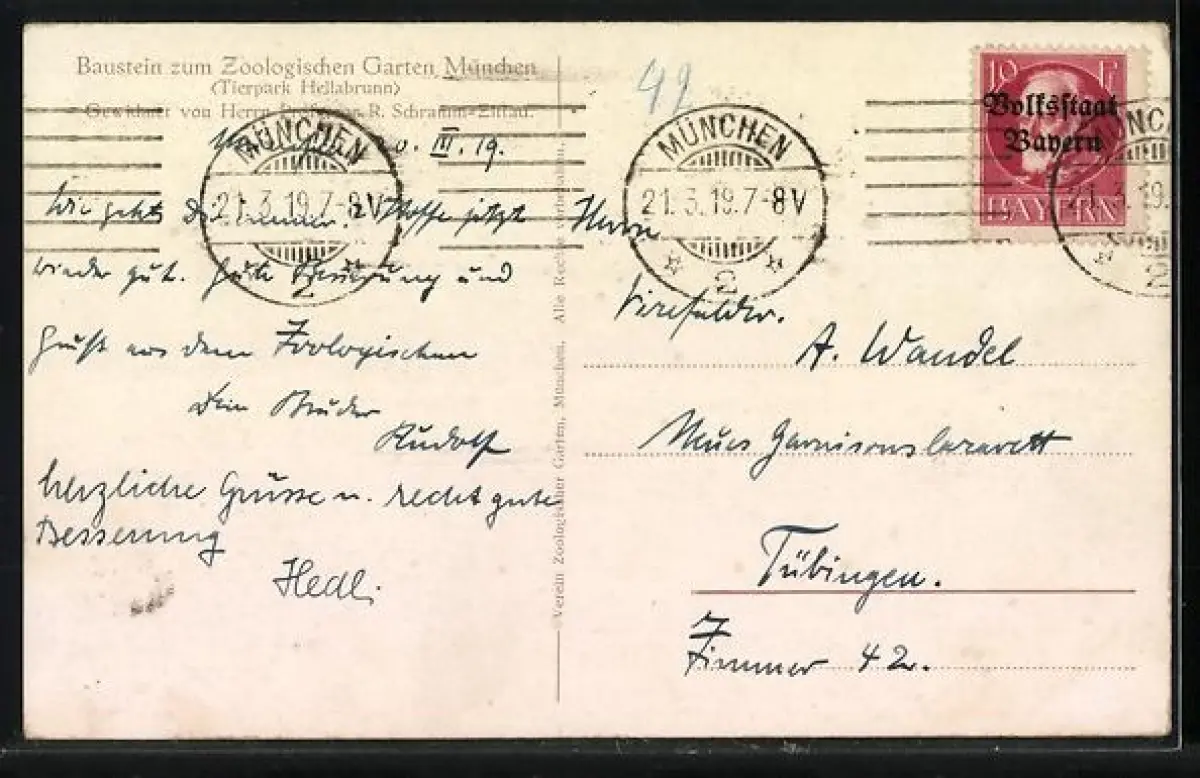 Baustein zum Zoologischen Garten München
(Tierpark Hellabrunn)
Gewidmet von Herrn Professor R. Schramm-Zittau.
20. III. 19.
Wie geht's Dir immer? Hoffe jetzt
wieder gut. Gute Besserung und
Gruß aus dem Zoologischen
Dein Bruder
Rudolf
herzliche Grüsse u. recht gute
Besserung
Hedl.
Verein Zoologischer Garten, München. Alle Rechte vorbehalten.
49
MÜNCHEN
21.3.19.7-8V
2
MÜNCHEN
21.3.19.7-8V
2
10 Pf
Volksstaat
Bayern
BAYERN
MÜNC
21.3.19.
2
Herrn
A. Wandel
Garnisonslazarett
Tübingen.
Zimmer 42.